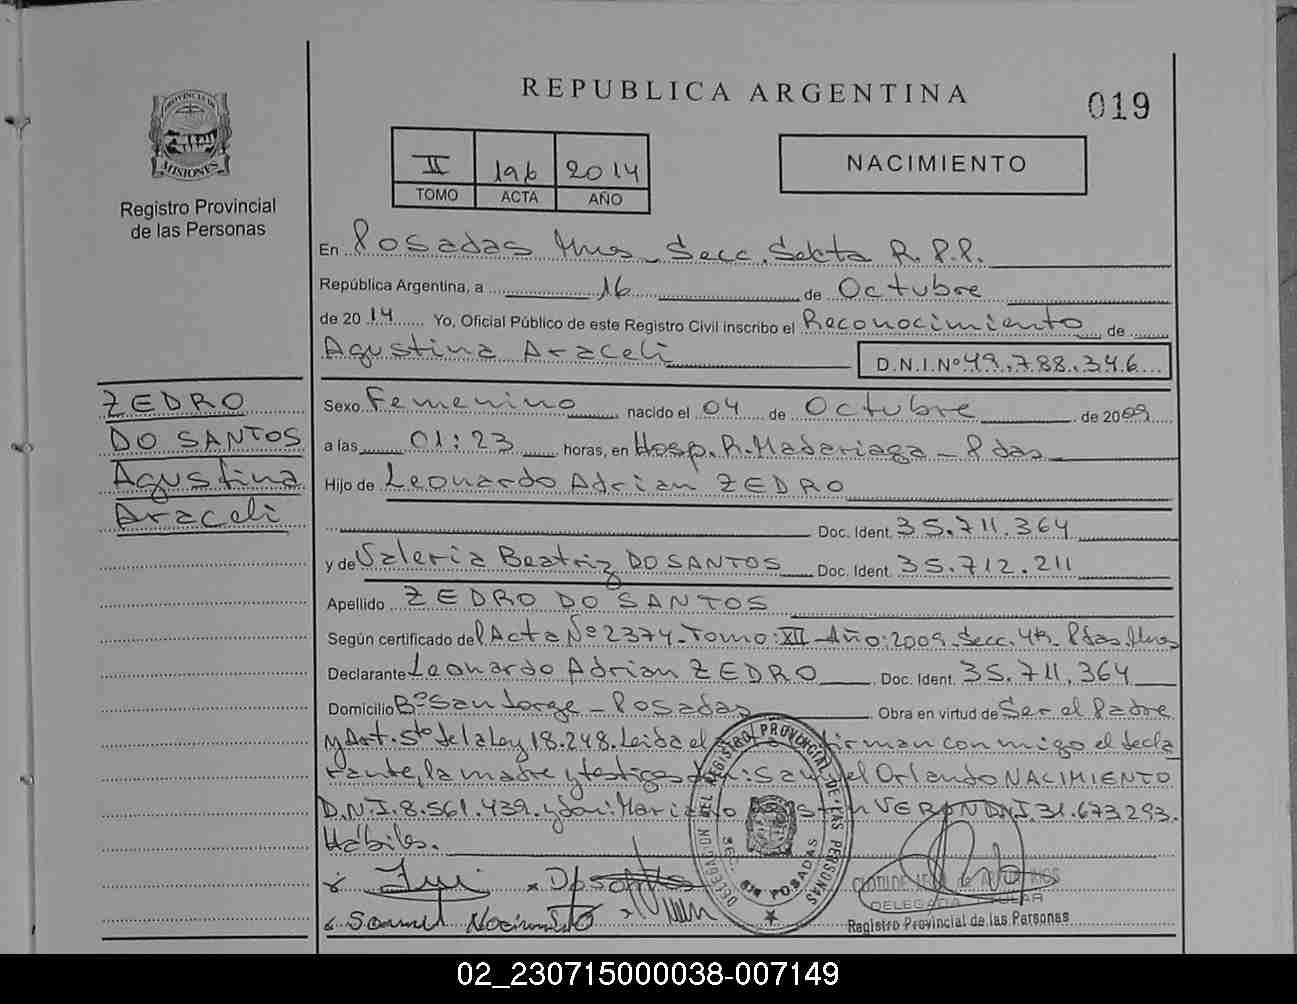 REPUBLICA ARGENTINA
019
PROVINCIA DE
MISIONES
Registro Provincial
de las Personas
II 196 2014
TOMO ACTA AÑO
NACIMIENTO
En Posadas Mnes Secc. Sexta R.P.P.
República Argentina, a 16 de Octubre
de 2014 Yo, Oficial Público de este Registro Civil inscribo el Reconocimiento de
Agustina Araceli D.N.I.Nº 49.788.346
ZEDRO
DO SANTOS
Agustina
Araceli
Sexo Femenino nacido el 04 de Octubre de 2009
a las 01:23 horas, en Hosp. R. Madariaga - Pdas
Hijo de Leonardo Adrian ZEDRO
Doc. Ident. 35.711.364
y de Valeria Beatriz DO SANTOS Doc. Ident. 35.712.211
Apellido ZEDRO DO SANTOS
Según certificado del Acta Nº 2374 - Tomo: XII - Año: 2009. Secc. 4ta. Pdas Mnes
Declarante Leonardo Adrian ZEDRO Doc. Ident. 35.711.364
Domicilio Bº San Jorge - Posadas Obra en virtud de Ser el Padre
y Art. 5to de la Ley 18.248. Leida el firman conmigo el decla
rante, la madre y testigos Orlando NACIMIENTO
D.N.I. 8.561.439. y don: VERON D.N.I. 31.673.293.
Hábiles.
Samuel Nacimiento
DELEGACION DEL REGISTRO PROVINCIAL DE LAS PERSONAS
POSADAS
DELEGADA TITULAR
Registro Provincial de las Personas
02_230715000038-007149